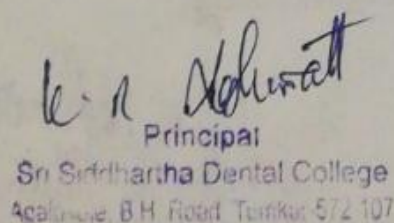 K. R
Principal
Sri Siddhartha Dental College
Agalkote, B H Road Tumkur 572 107